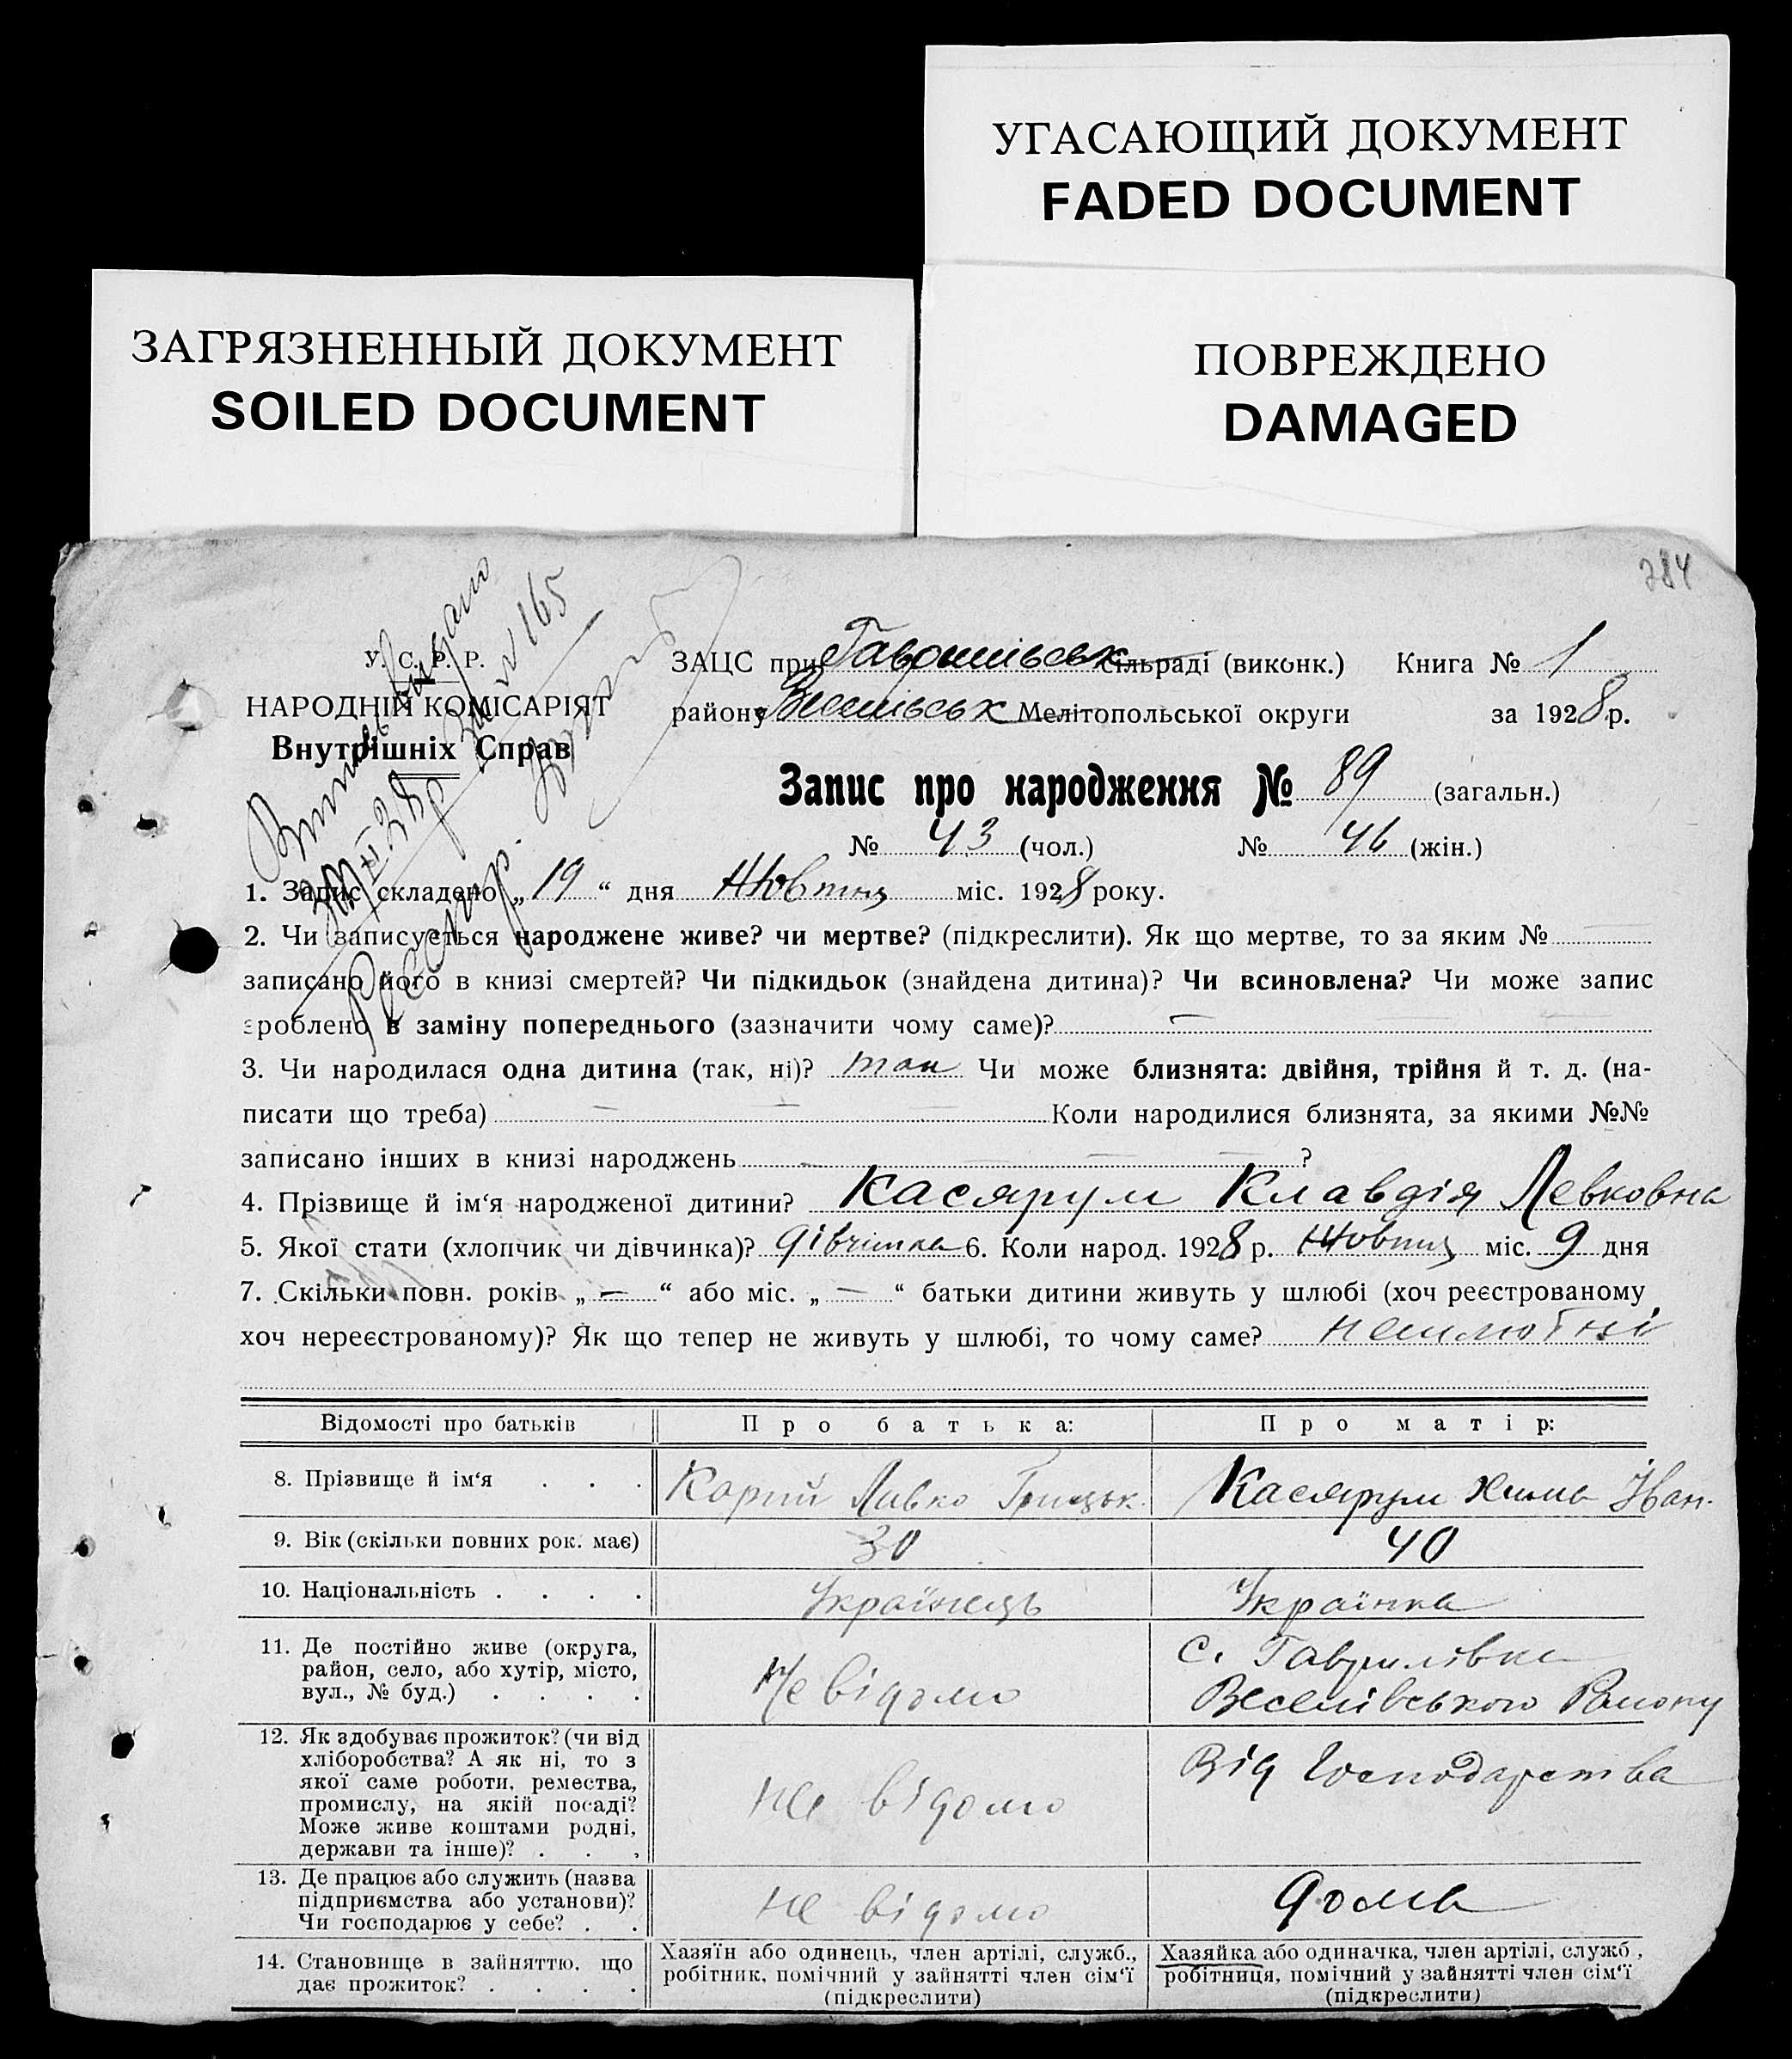 УГАСАЮЩИЙ ДОКУМЕНТ
FADED DOCUMENT
ЗАГРЯЗНЕННЫЙ ДОКУМЕНТ
SOILED DOCUMENT
ПОВРЕЖДЕНО
DAMAGED
284
Витяг видано
165
У. С. Р. Р.
НАРОДНІЙ КОМІСАРІЯТ
Внутрішніх Справ
ЗАЦС при сільраді (виконк.) Книга № 1
району Веселівськ Мелітопольської округи за 1928 р.
Запис про народження № 89 (загальн.)
№ 43 (чол.) № 46 (жін.)
1. Запис складено „19“ дня Жовтня міс. 1928 року.
2. Чи записується народжене живе? чи мертве? (підкреслити). Як що мертве, то за яким №
записано його в книзі смертей? Чи підкидьок (знайдена дитина)? Чи всиновлена? Чи може запис
зроблено в заміну попереднього (зазначити чому саме)? —
3. Чи народилася одна дитина (так, ні)? так Чи може близнята: двійня, трійня й т. д. (на-
писати що треба) — — — Коли народилися близнята, за якими №№
записано інших в книзі народжень — — — ?
4. Прізвище й ім‘я народженої дитини? Касярум Клавдія Левковна
5. Якої стати (хлопчик чи дівчинка)? дівчинка 6. Коли народ. 1928 р. Жовтня міс. 9 дня
7. Скільки повн. років „ — “ або міс. „ — “ батьки дитини живуть у шлюбі (хоч реєстрованому,
хоч нереєстрованому)? Як що тепер не живуть у шлюбі, то чому саме?
Відомості про батьків Про батька: Про матір:
8. Прізвище й ім‘я . . . Левко Грицьк. Касярум Іван.
9. Вік (скільки повних рок. має) 30 40
10. Національність . . . . Українець Українка
11. Де постійно живе (округа,
район, село, або хутір, місто,
вул., № буд.) . . . .
Не відомо
с. Гаврилівка
Веселівського Району
12. Як здобуває прожиток? (чи від
хліборобства? А як ні, то з
якої саме роботи, ремества,
промислу, на якій посаді?
Може живе коштами родні,
держави та інше)? . . .
не відомо
Від господарства
13. Де працює або служить (назва
підприємства або установи)?
Чи господарює у себе? . .
не відомо
дома
14. Становище в зайняттю, що
дає прожиток? . . . .
Хазяїн або одинець, член артілі, служб.,
робітник, помічний у зайнятті член сім‘ї
(підкреслити)
Хазяйка або одиначка, член артілі, служб.,
робітниця, помічний у зайнятті член сім‘ї
(підкреслити)